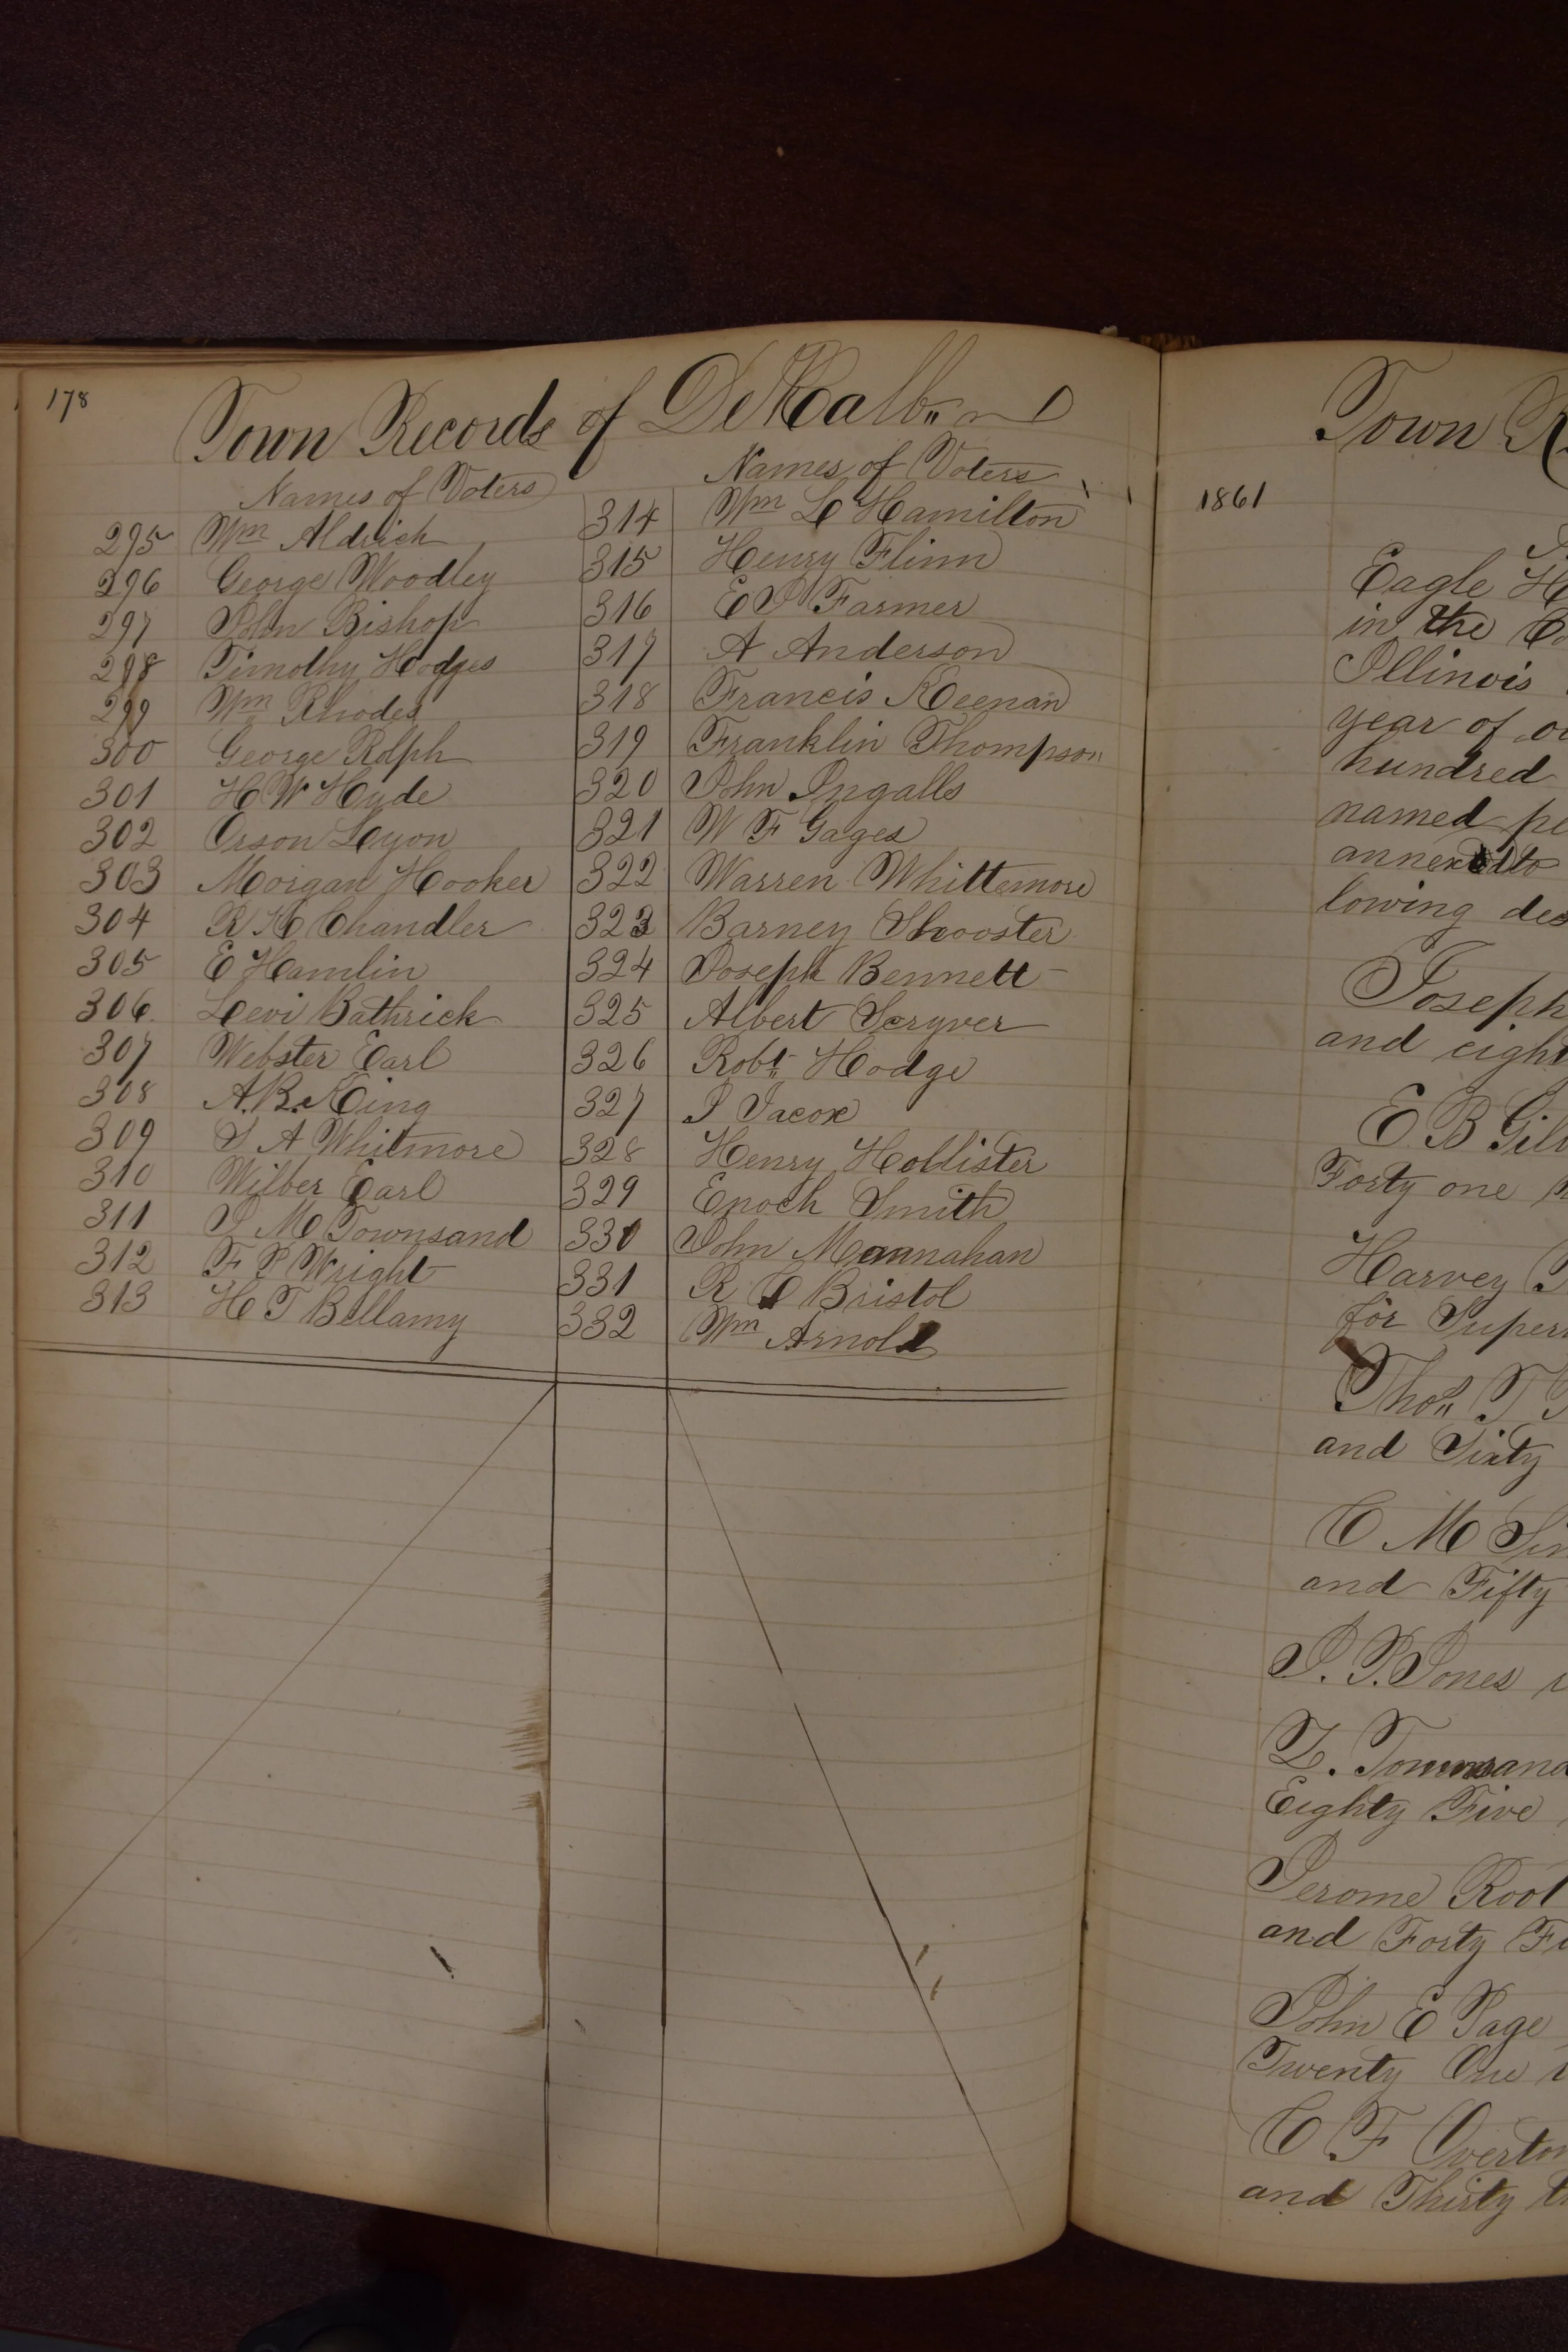 178
Town Records of DeKalb
Names of Voters
295 Wm Aldrich
296 George Woodley
297 John Bishop
298 Timothy Hodges
299 Wm Rhodes
300 George Rolph
301 H W Hyde
302 Orson Lyon
303 Morgan Hooker
304 R H Chandler
305 E Hamlin
306 Levi Bathrick
307 Webster Earl
308 A. B. King
309 S A Whitmore
310 Wilber Earl
311 J M Townsand
312 F P Wright
313 H T Bellamy
Names of Voters
314 Wm L Hamilton
315 Henry Flinn
316 E I Farmer
317 A Anderson
318 Francis Keenan
319 Franklin Thompson
320 John Ingalls
321 W F Gages
322 Warren Whittemore
323 Barney Shooster
324 Joseph Bennett
325 Albert Scryver
326 Robt Hodge
327 I Jacox
328 Henry Hollister
329 Enoch Smith
330 John Mannahan
331 R C Bristol
332 Wm Arnold
Town R
1861
Eagle H
in the Co
Illinois
year of ou
hundred
named pe
annexed to
lowing des
Joseph
and eight
E B Gil
Forty one
Harvey
for Super
Thos T
and Sixty
C M Sim
and Fifty
I. P. Jones
Z. Townsand
Eighty Five
Jerome Root
and Forty Fi
John E Page
Twenty One
C F Overton
and Thirty t